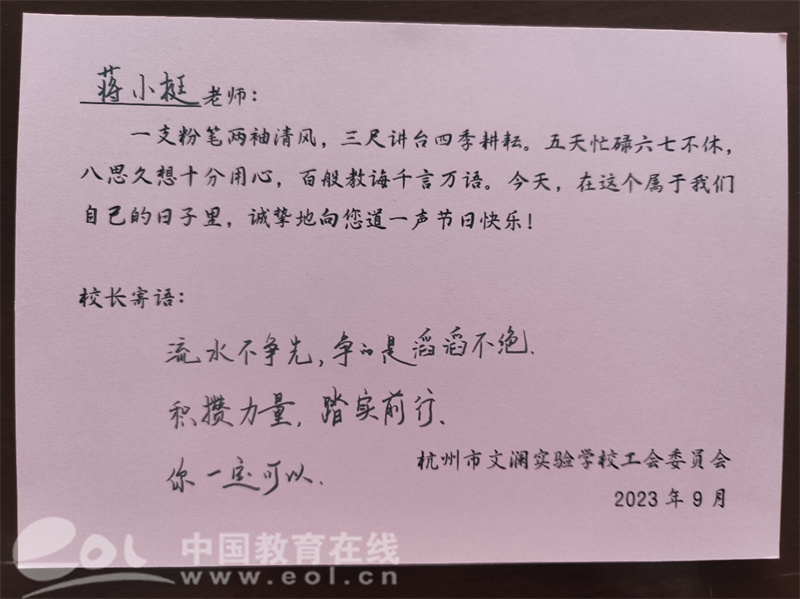 蒋小挺老师：
一支粉笔两袖清风，三尺讲台四季耕耘。五天忙碌六七不休，
八思久想十分用心，百般教诲千言万语。今天，在这个属于我们
自己的日子里，诚挚地向您道一声节日快乐！
校长寄语：
流水不争先，争的是滔滔不绝.
积攒力量，踏实前行.
你一定可以.
杭州市文澜实验学校工会委员会
2023年9月
eol 中国教育在线
www.eol.cn